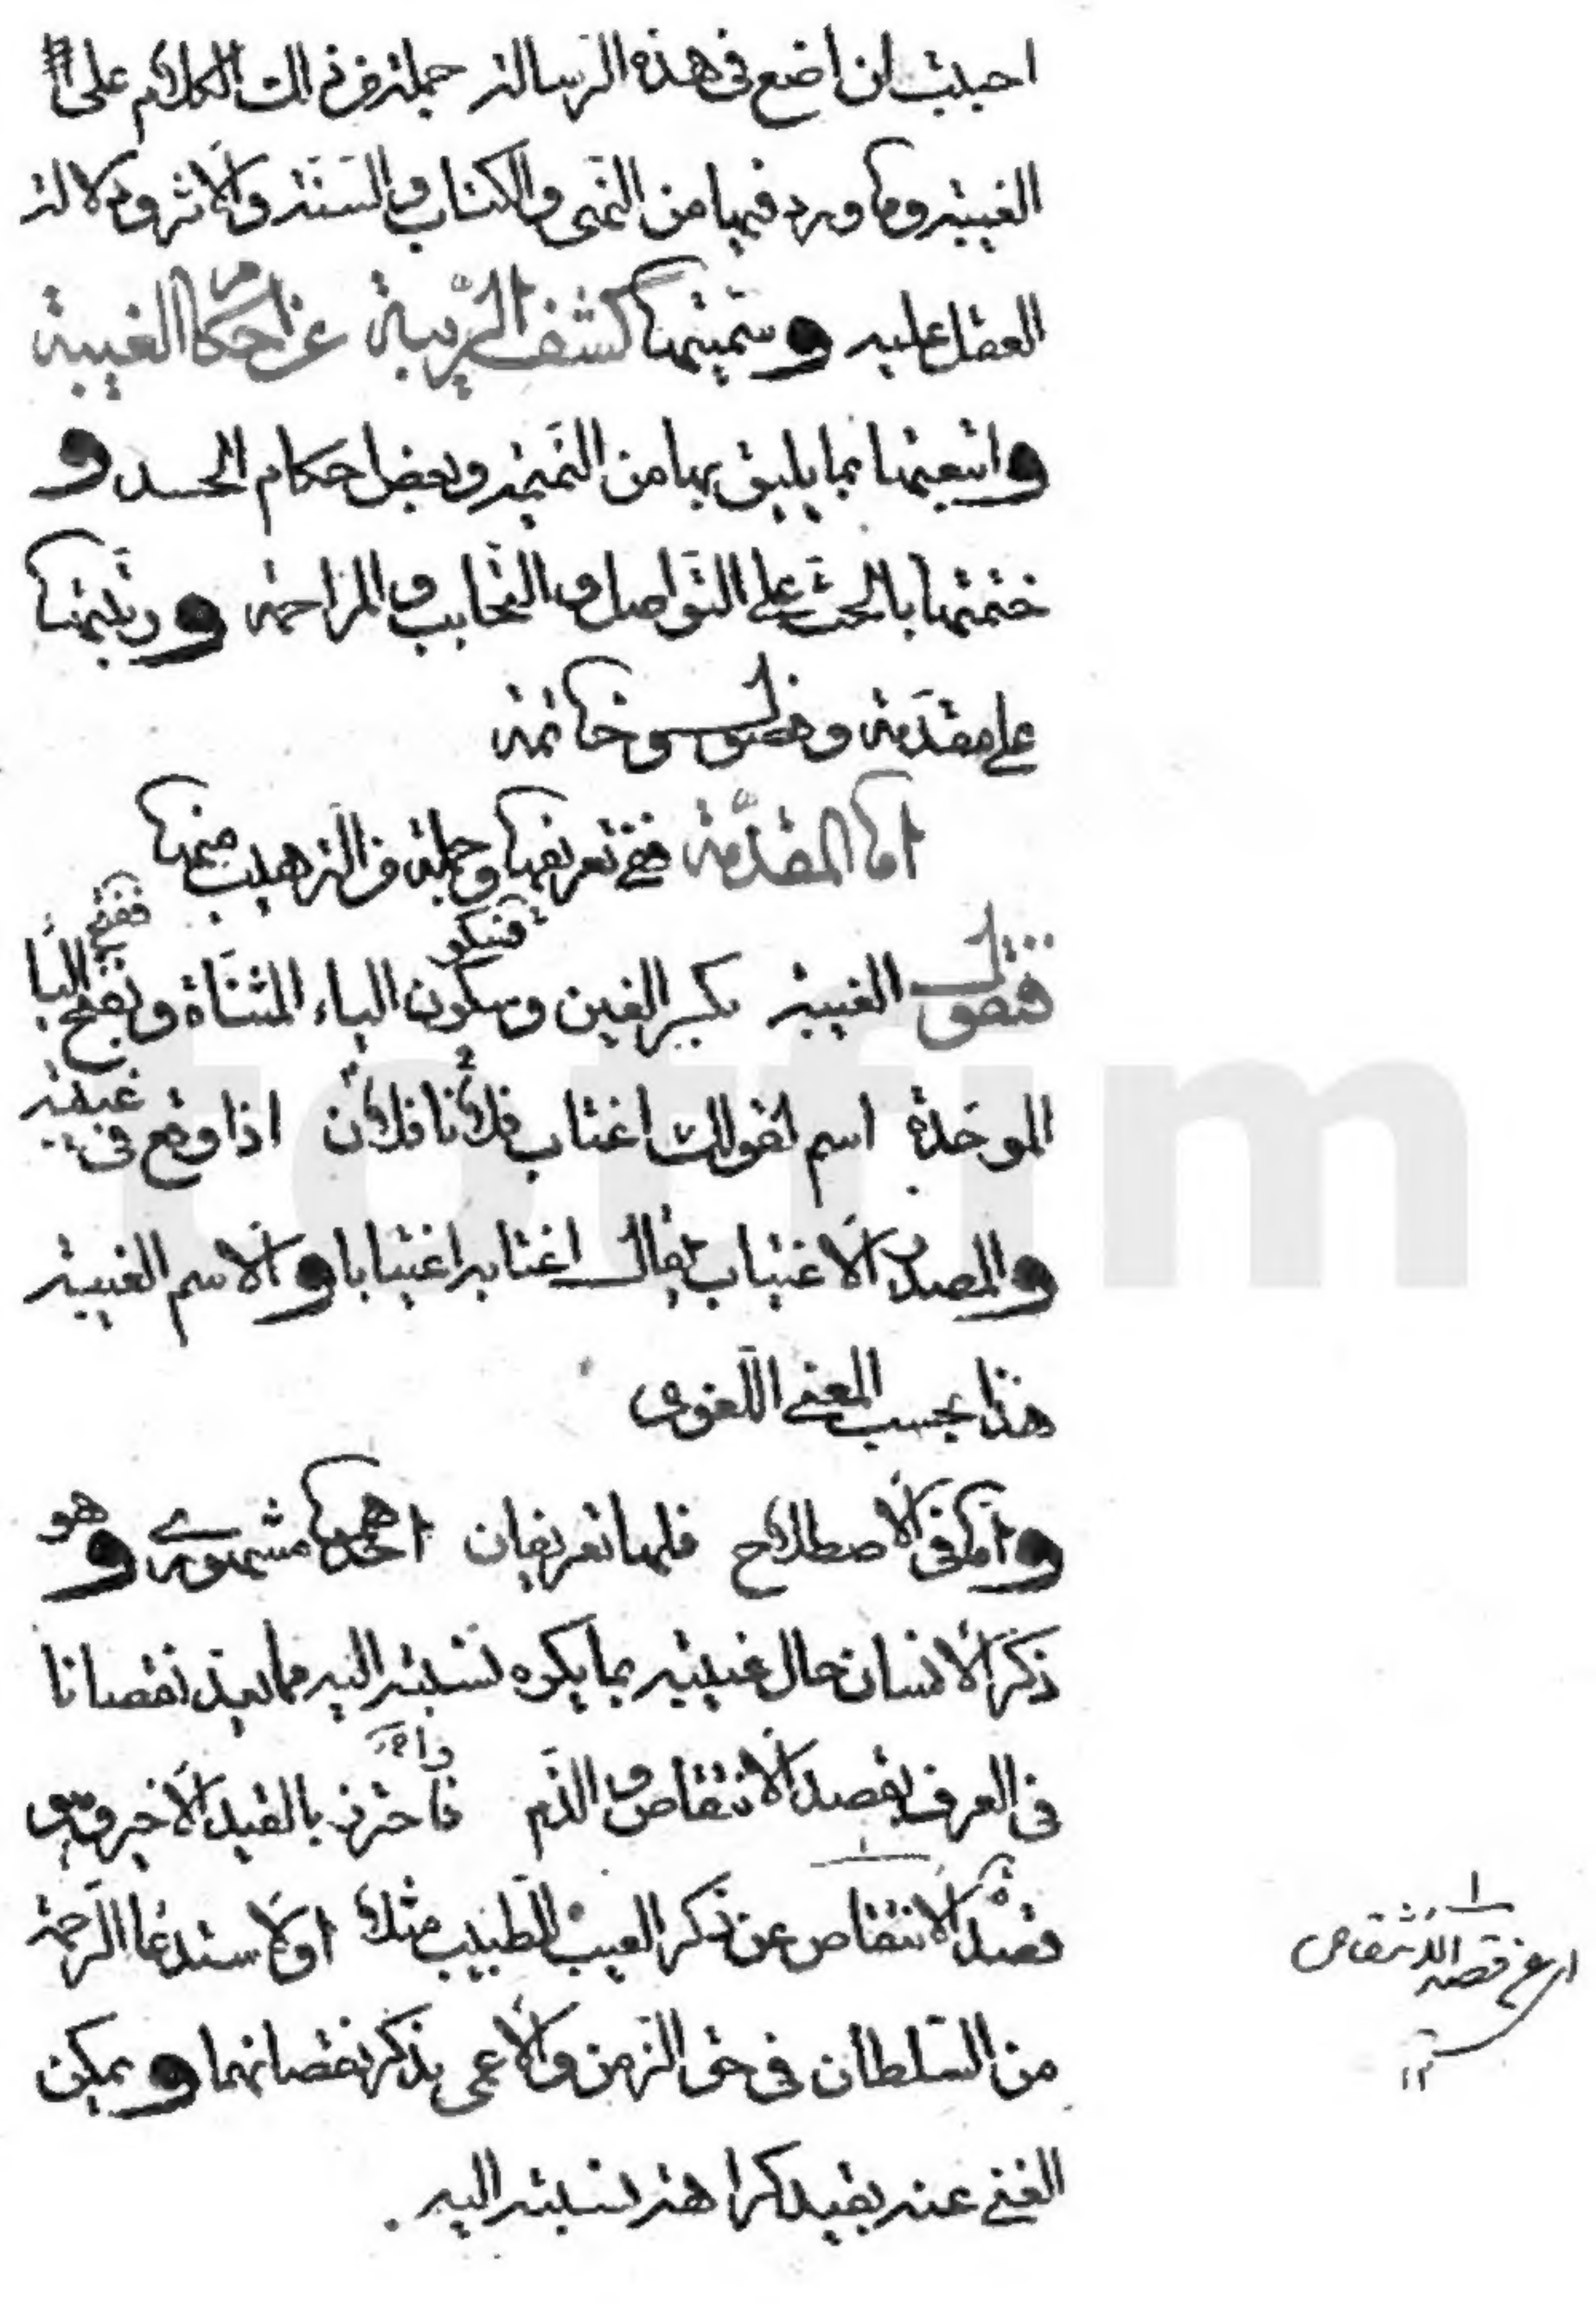 احببت ان اضع فی هذه الرسالة جملة من ذلك الكلام على
الغيبة وما ورد فيها من النهی والكتاب والسنة والاثر ودلالة
العقل عليه وسميتها كشف الريبة عن احكام الغيبة
واتبعتها بما يليق بها من النميمة وبعض احكام الحسد و
ختمتها بالحث على التواصل والتحابب والمراحمة ورتبتها
على مقدمة وفصول وخاتمة
اما المقدمة ففی تعريفها وجملة من الترهيب منها
فنقول الغيبة بكسر الغين وسكون الياء المثناة وفتح الباء
الموحدة اسم لقولك اغتاب فلانا فلان اذا وقع فی غيبته
والمصدر الاغتياب يقال اغتابه اغتيابا والاسم الغيبة
هذا بحسب المعنی اللغوی
واما فی الاصطلاح فلها تعريفان احدهما مشهوری وهو
ذكر الانسان حال غيبته بما يكره نسبته اليه مما يعد نقصانا
فی العرف بقصد الانتقاص والذم فاحترز بالقيد الاخير وهو
قصد الانتقاص عن ذكر العيب للطبيب مثلا او لاستدعاء الرحمة
من السلطان فی حق الزمن والاعمی بذكر نقصانهما ويمكن
الغنی عنه بقيد كراهة نسبته اليه .
قصد الانتقاص
totfim